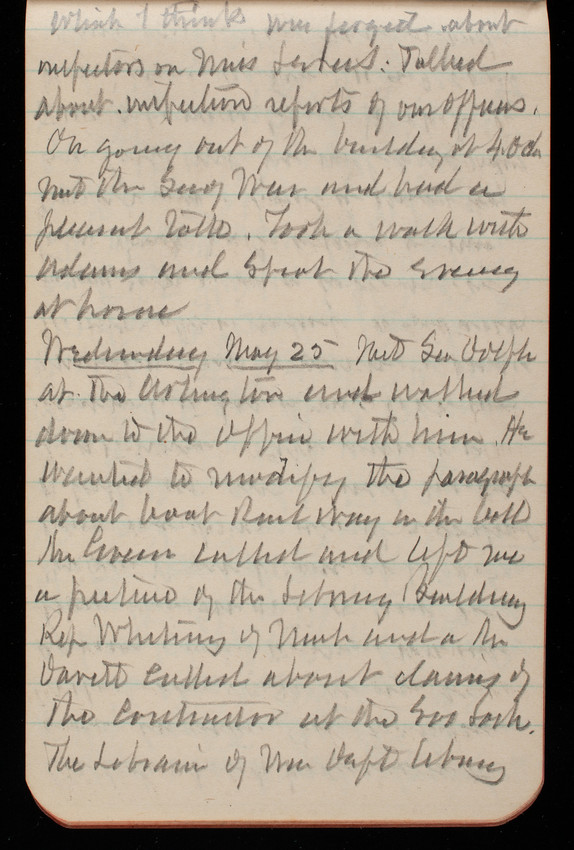 which I think was forgot about
inspectors on this . Talked
about inspection reports of our officers.
On going out of the building at 4.
met the Secy War and had a
pleasant talk. Took a walk with
Adams and spent the evening
at home
Wednesday May 25 Met Sen Dolph
at the Arlington and walked
down to the office with him. He
wanted to modify the paragraph
about boat Railway in the bill
Gen called and left me
a picture of the Library Building
Rep Whiting of Mich and a Mr
Davett called about claims of
the contractor at the Soo Lock.
The of War Dept library